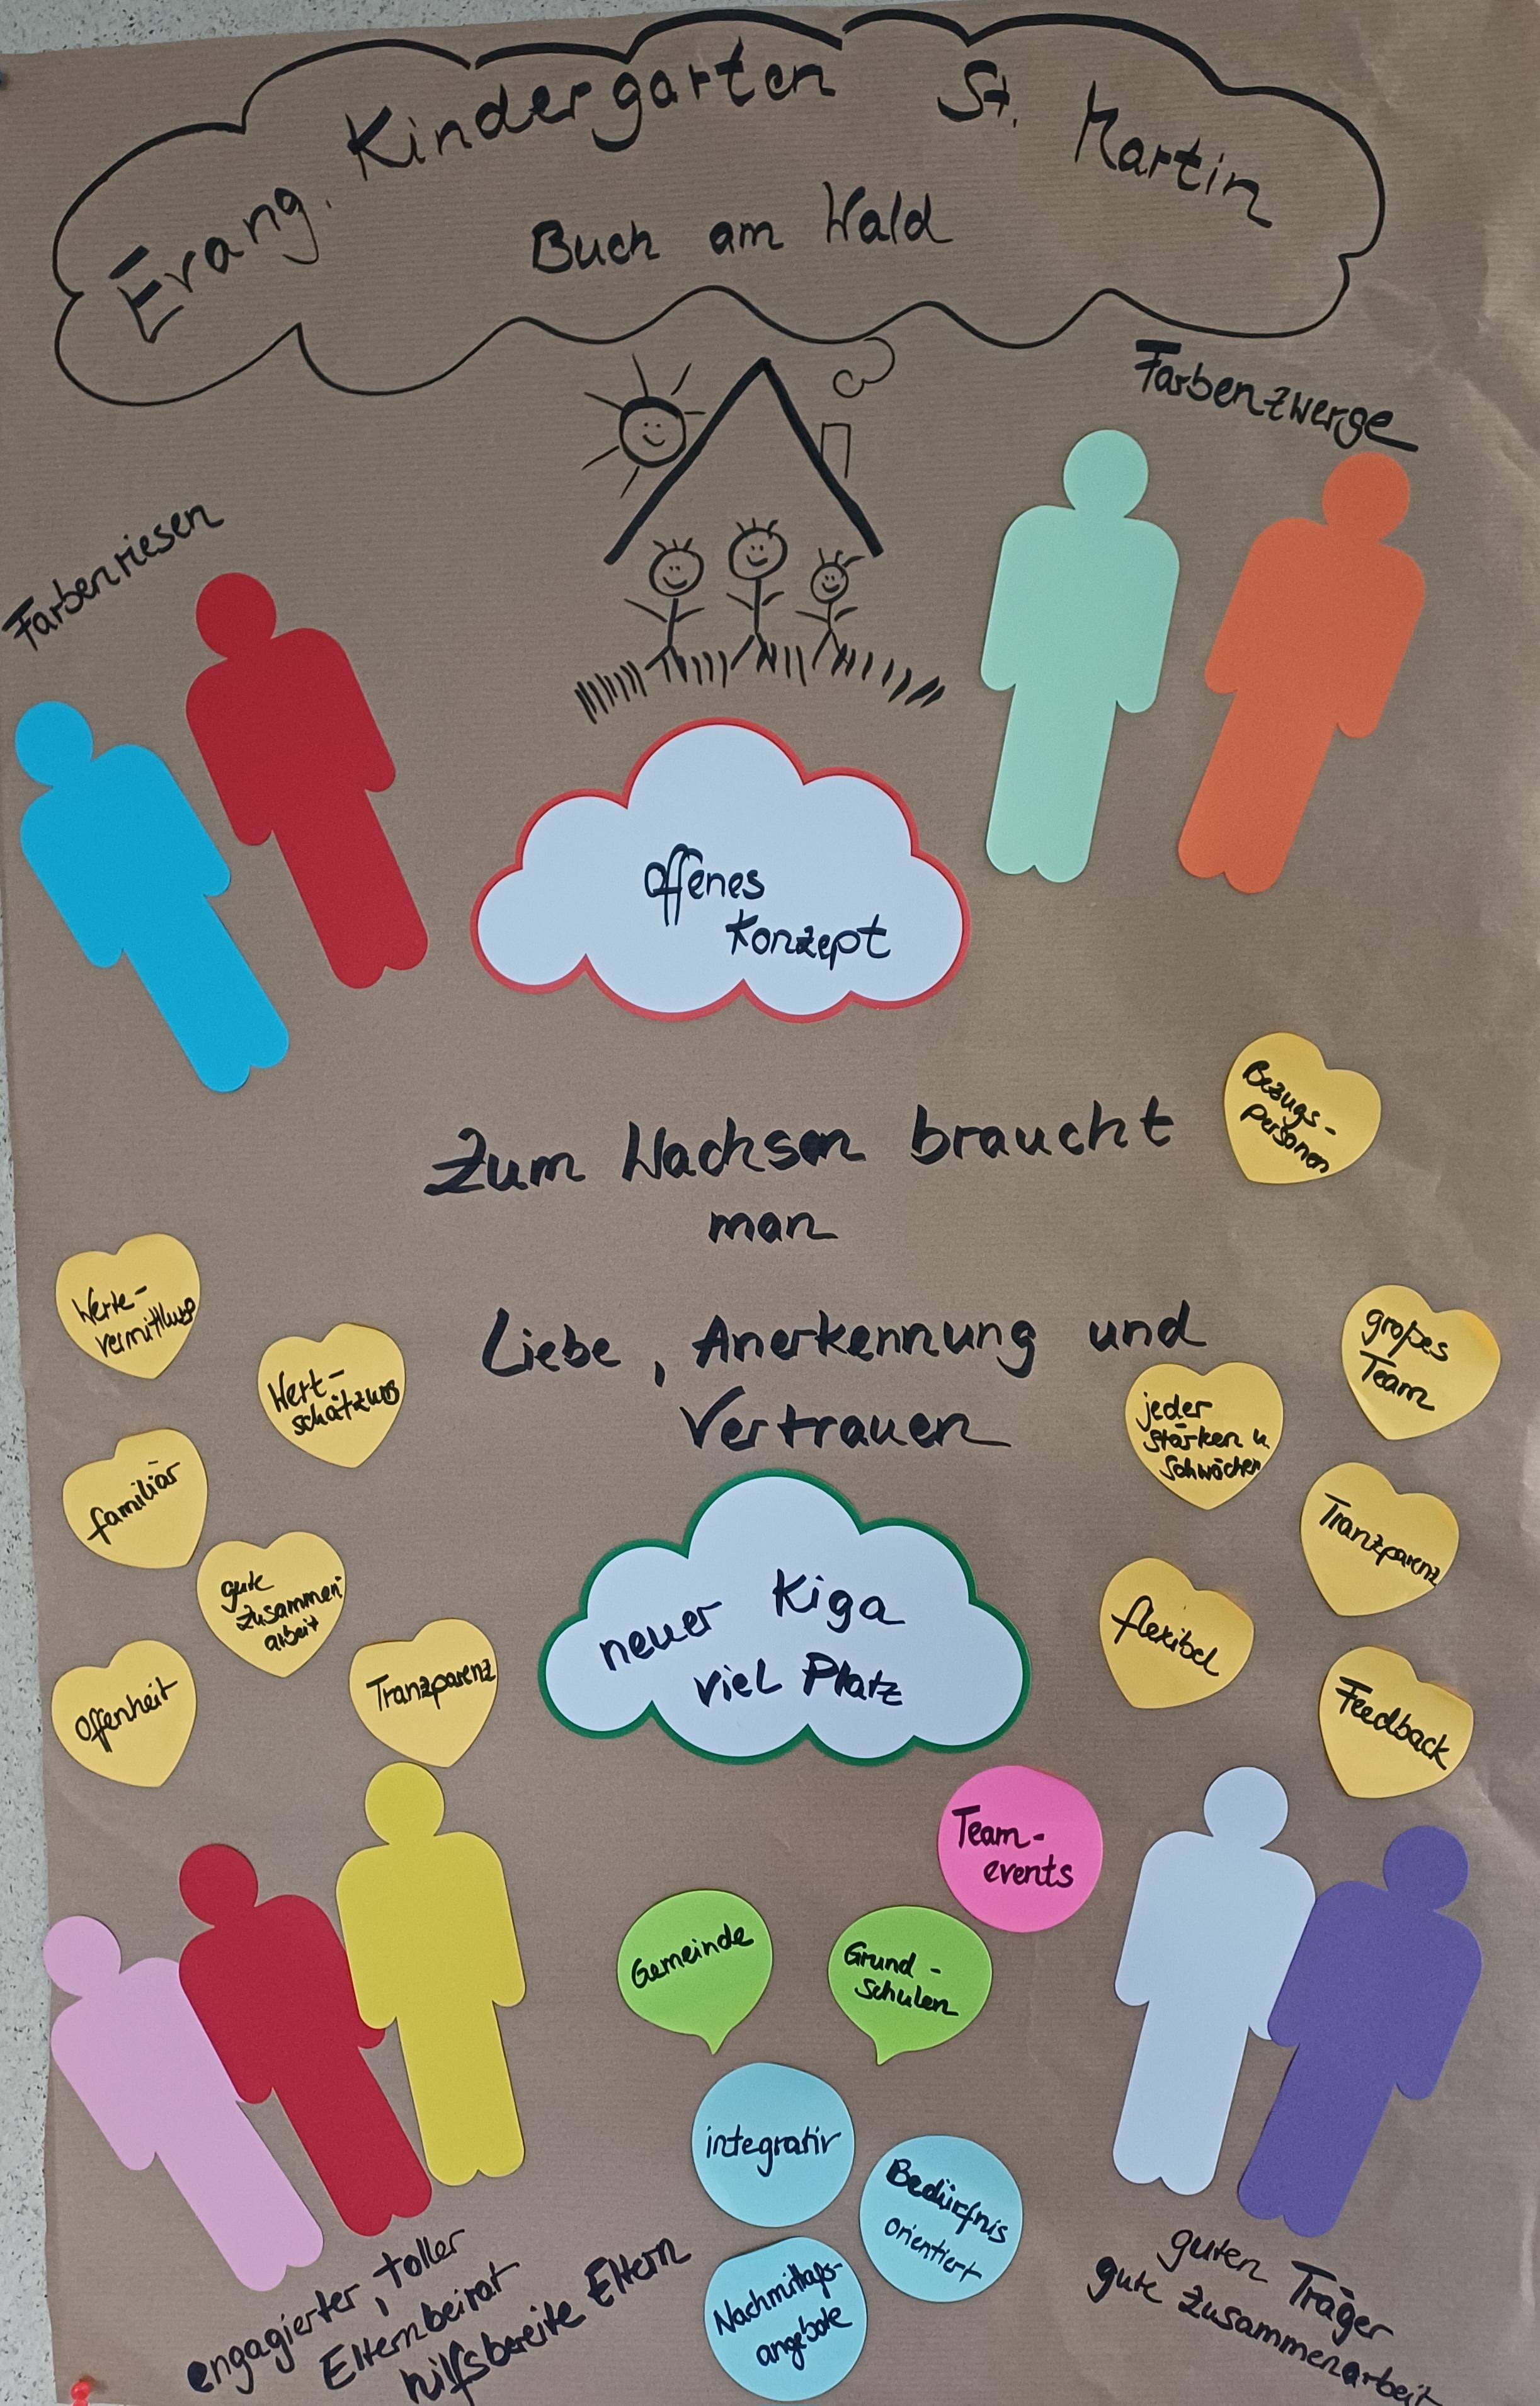 Evang. Kindergarten St. Martin
Buch am Wald
Farbenzwerge
Farbenriesen
offenes
Konzept
Bezugs-
personen
Zum Wachsen braucht
man
Liebe, Anerkennung und
Vertrauen
Werte-
vermittlung
Wert-
schätzung
familiär
gute
Zusammen-
arbeit
Offenheit
Tranzparenz
großes
Team
jeder
Stärken u
Schwächen
Tranzparenz
flexibel
Feedback
neuer Kiga
viel Platz
Team-
events
Gemeinde
Grund-
Schulen
integrativ
Bedürfnis
orientiert
Nachmittags-
angebote
engagierter, toller
Elternbeirat
hilfsbereite Eltern
guten Träger
gute Zusammenarbeit